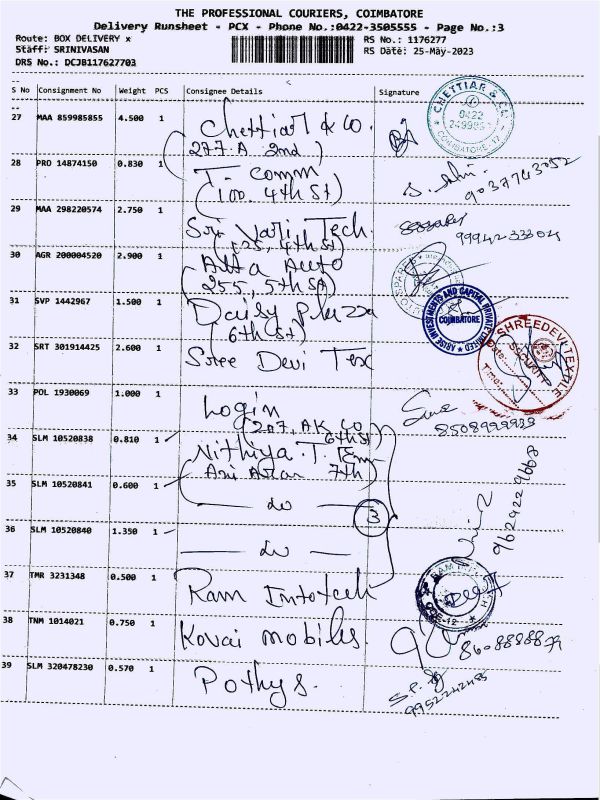 THE PROFESSIONAL COURIERS, COIMBATORE
Delivery Runsheet - PCX - Phone No.:0422-3505555 - Page No.:3
Route: BOX DELIVERY x
RS No.: 1176277
Staff: SRINIVASAN
RS Date: 25-May-2023
DRS No.: DCJB117627703
S No Consignment No Weight PCS Consignee Details Signature
27 MAA 859985855 4.500 1 Chettiar & Co.
277.A 2nd)
CHETTIAR & CO.
0422
COIMBATORE-12
28 PRO 14874150 0.830 1 T. comm
(100. 4th St)
9037743052
29 MAA 298220574 2.750 1 Sri Vari Tech.
(525, 4th St)
9994233304
30 AGR 200004520 2.900 1 Atta Auto
(255, 5th St)
31 SVP 1442967 1.500 1 Daisy Plazza
(6th St)
ARISE INVESTMENTS AND CAPITAL PRIVATE LIMITED
COIMBATORE
32 SRT 301914425 2.600 1 Sree Devi Tex
SHREEDEVI TEXTILE
SECURITY
Date:
Time:
33 POL 1930069 1.000 1 Login
(207, AK Co
6th St)
8508999939
34 SLM 10520838 0.810 1 Nithiya. T. Em
7th)
35 SLM 10520841 0.600 1 do
3
9629229668
36 SLM 10520840 1.350 1 do
37 TMR 3231348 0.500 1 Ram Infotech
38 TNM 1014021 0.750 1 Kovai mobiles
39 SLM 320478230 0.570 1 Pothys.
9952242485